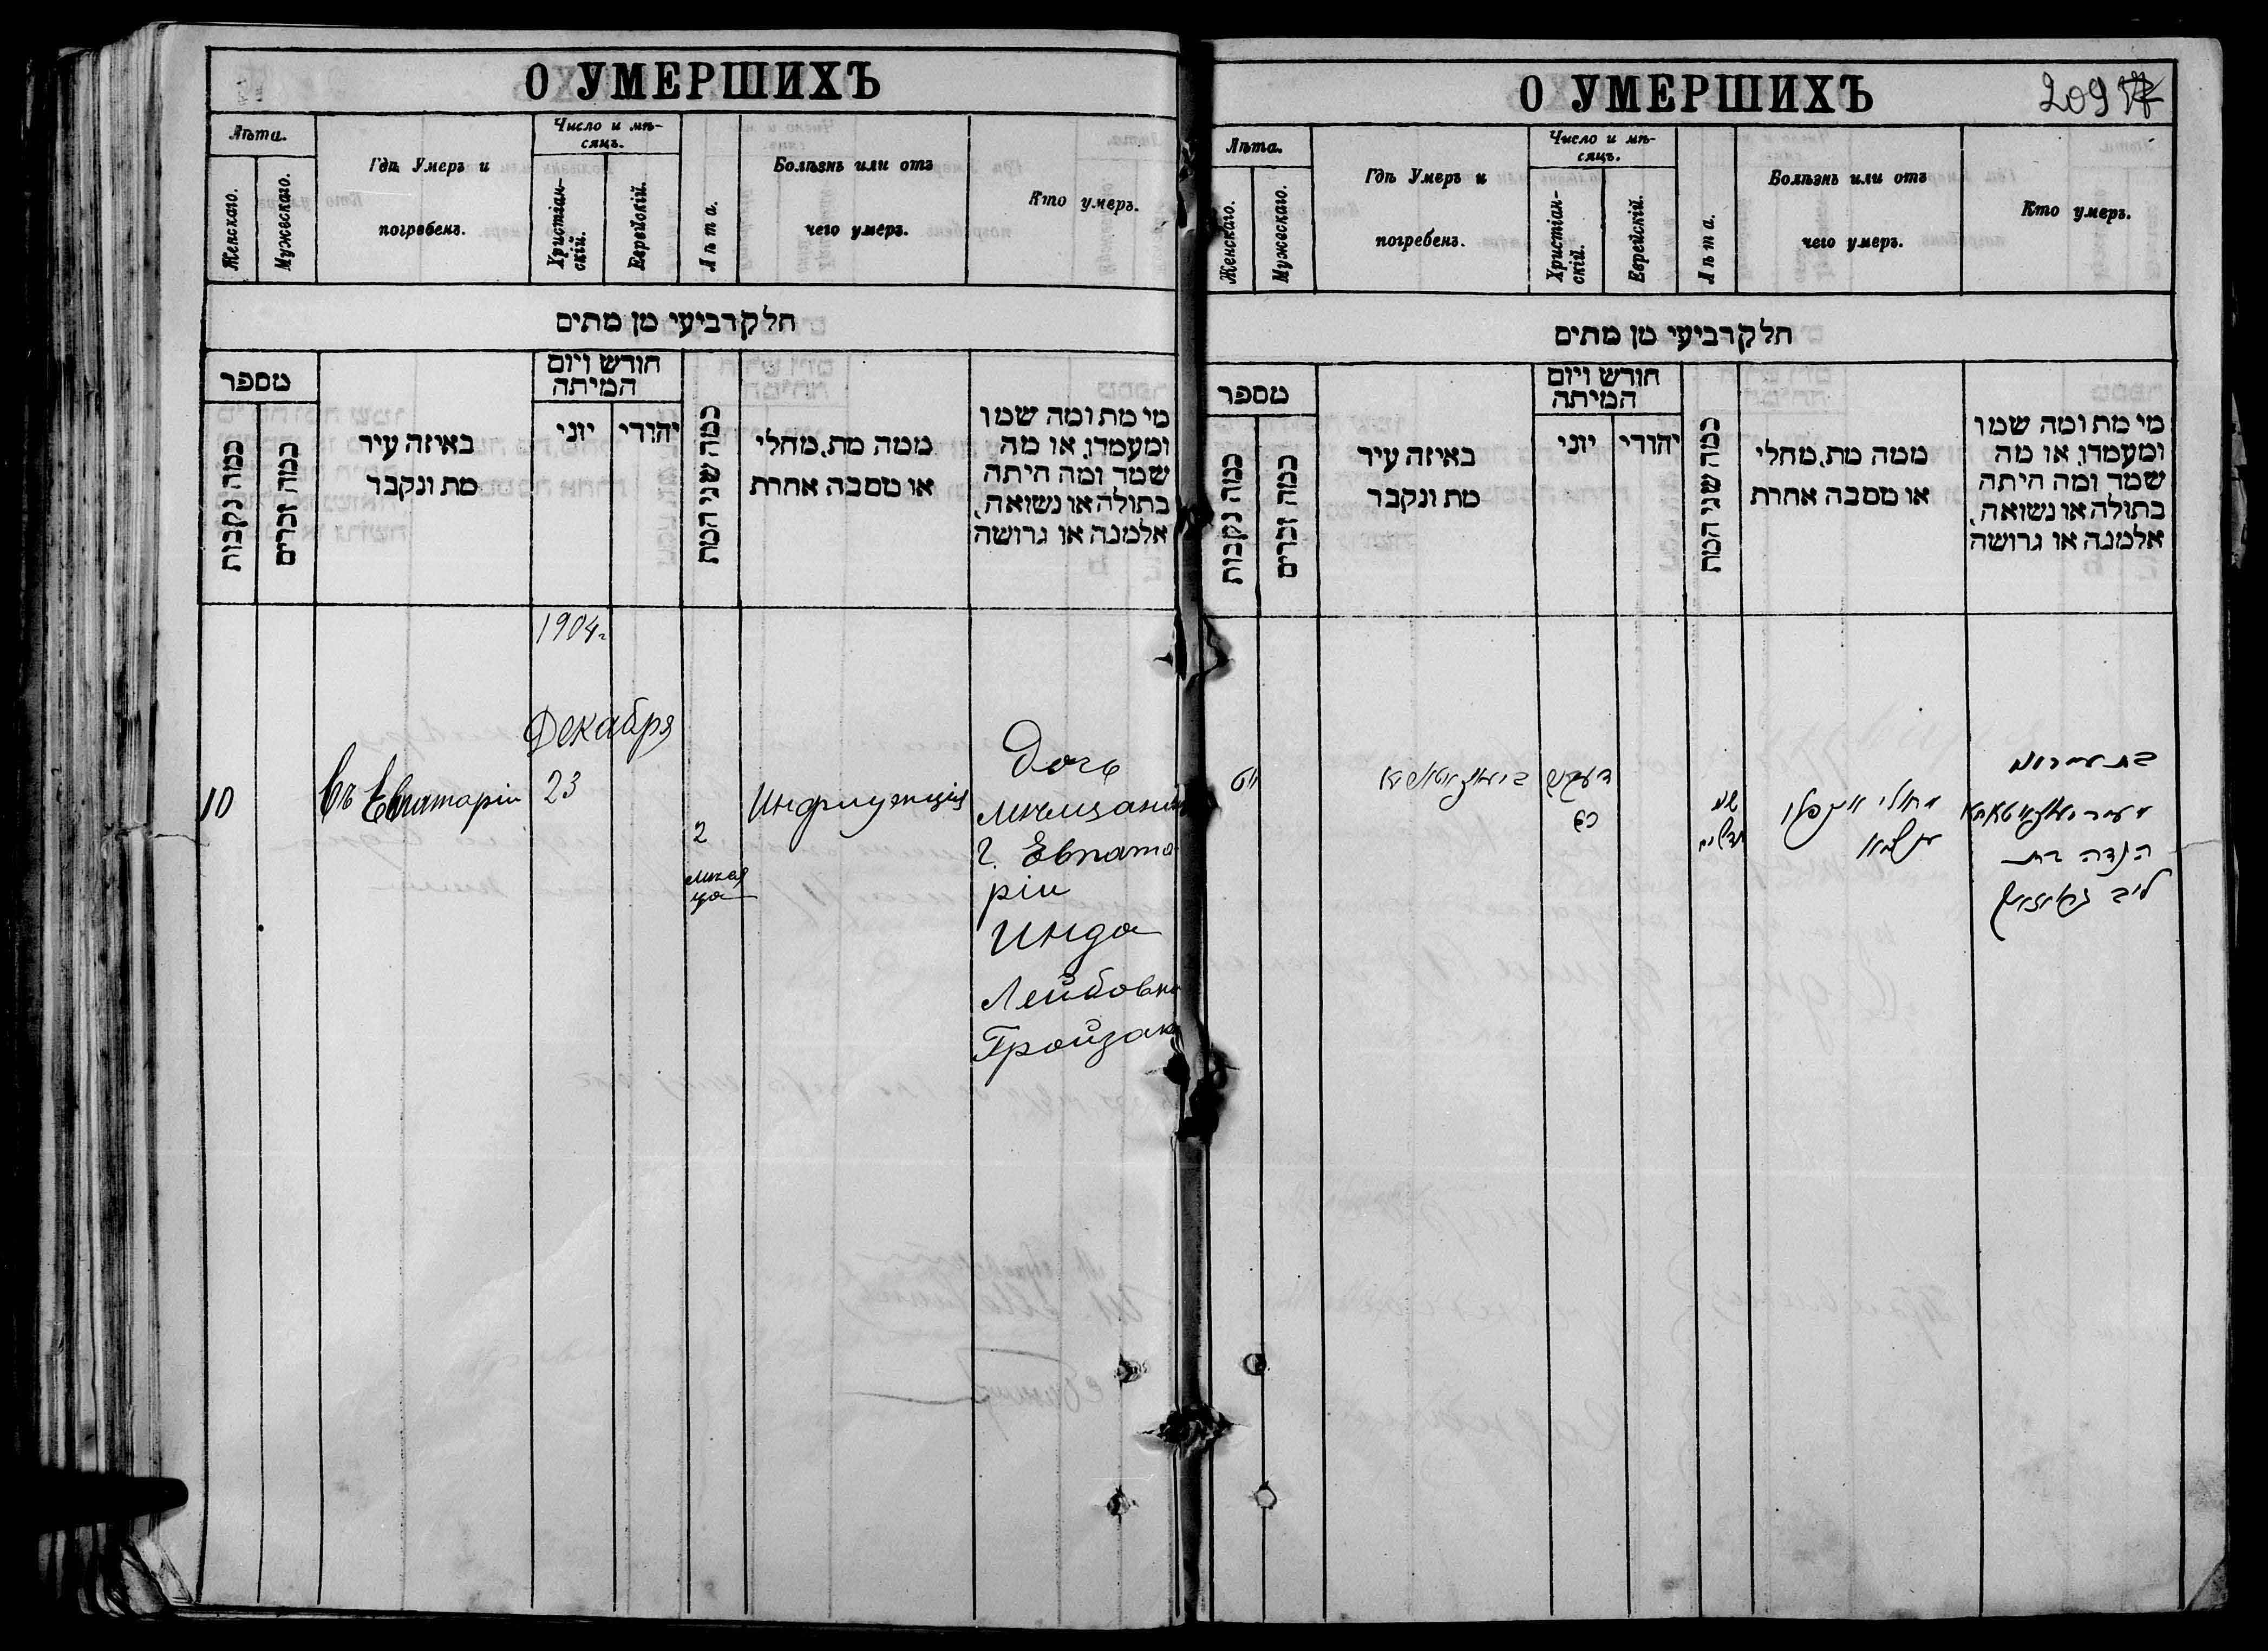 О УМЕРШИХЪ
Лѣта.
Женскаго.
Мужескаго.
Гдѣ Умеръ и
погребенъ.
Число и мѣ-
сяцъ.
Христіан-
скій.
Еврейскій.
Лѣта.
Болѣзнь или отъ
чего умеръ.
Кто умеръ.
חלק רביעי מן מתים
מספר
כמה נקבות
כמה זכרים
באיזה עיר
מת ונקבר
חודש ויום
המיתה
יוני
יהודי
כמה שני המת
ממה מת, מחלי
או מסבה אחרת
מי מת ומה שמו
ומעמדו, או מה
שמה ומה היתה
בתולה או נשואה,
אלמנה או גרושה
1904 г.
Декабря
10
Въ Евпаторіи
23
2
мѣсяца
Инфлуэнція
Дочь
мѣщанина
г. Евпато-
ріи
Инда
Лейбовна
Гройзак
О УМЕРШИХЪ
209
Лѣта.
Женскаго.
Мужескаго.
Гдѣ Умеръ и
погребенъ.
Число и мѣ-
сяцъ.
Христіан-
скій.
Еврейскій.
Лѣта.
Болѣзнь или отъ
чего умеръ.
Кто умеръ.
חלק רביעי מן מתים
מספר
כמה נקבות
כמה זכרים
באיזה עיר
מת ונקבר
חודש ויום
המיתה
יוני
יהודי
כמה שני המת
ממה מת, מחלי
או מסבה אחרת
מי מת ומה שמו
ומעמדו, או מה
שמה ומה היתה
בתולה או נשואה,
אלמנה או גרושה
מחולי
בת
הינדה בת
ליב